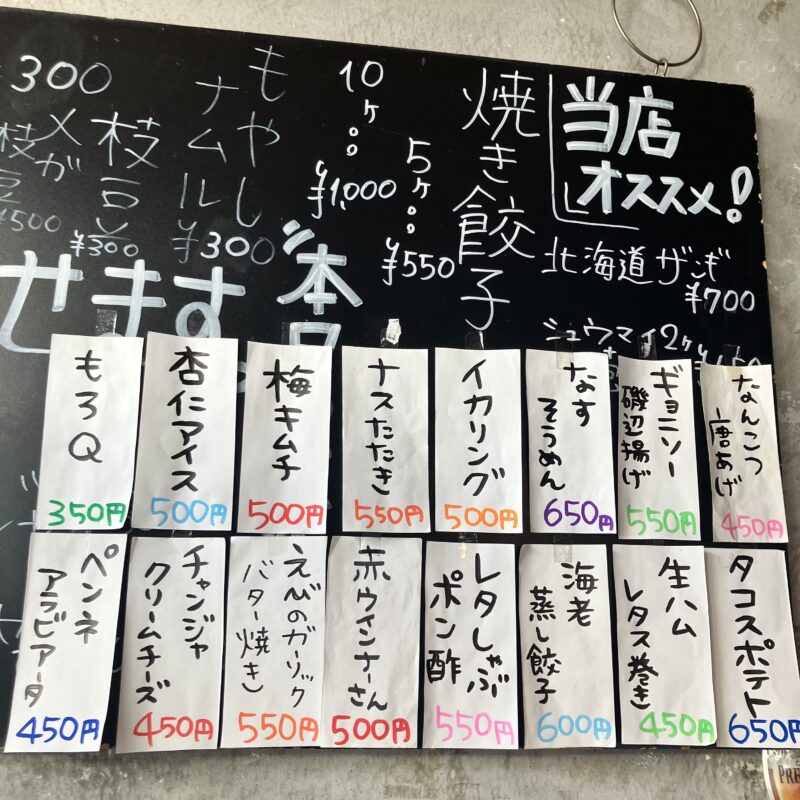 当店
オススメ!
北海道ザンギ
¥700
シュウマイ2ケ
焼き餃子
5ケ
¥550
10ケ
¥1,000
もやし
ナムル
¥300
枝豆
¥300
メガ
枝豆
¥500
300
本日
せます
なんこつ
唐あげ
450円
ギョニソー
磯辺揚げ
550円
なす
そうめん
650円
イカリング
500円
ナスたたき
550円
梅キムチ
500円
杏仁アイス
500円
もろQ
350円
タコスポテト
650円
生ハム
レタス巻き
450円
海老
蒸し餃子
600円
レタしゃぶ
ポン酢
550円
赤ウインナーさん
500円
えびのガーリック
バター焼き
550円
チャンジャ
クリームチーズ
450円
ペンネ
アラビアータ
450円